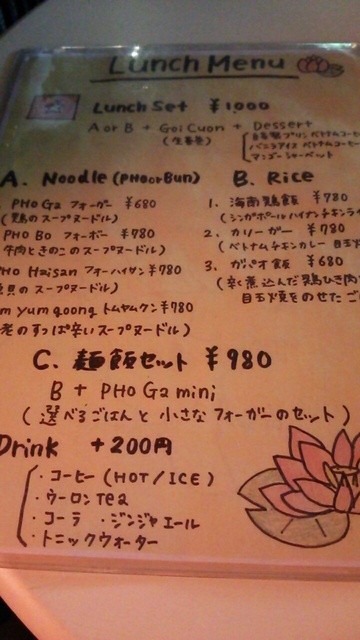 Lunch Menu
Lunch Set ¥1,000
A or B + Goi Cuon + Dessert
(生春巻)
自家製プリン ベトナムコーヒー
バニラアイス ベトナムコーヒー
マンゴーシャーベット
A. Noodle (PHO or Bun)
PHO Ga フォーガー ¥680
(鶏のスープヌードル)
PHO Bo フォーボー ¥780
牛肉ときのこのスープヌードル)
HO Haisan フォーハイサン ¥780
魚貝のスープヌードル)
m yum goong トムヤムクン ¥780
老のすっぱ辛いスープヌードル)
B. Rice
1. 海南鶏飯 ¥780
(シンガポールハイナンチキンライ
2. カリーガー ¥780
(ベトナムチキンカレー 目玉
3. ガパオ飯 ¥680
(辛く煮込んだ鶏ひき肉
目玉焼をのせたご
C. 麺飯セット ¥980
B + PHO Ga mini
(選べるごはんと小さなフォーガーのセット)
Drink +200円
・コーヒー (HOT / ICE)
・ウーロンTea
・コーラ ・ジンジャエール
・トニックウォーター